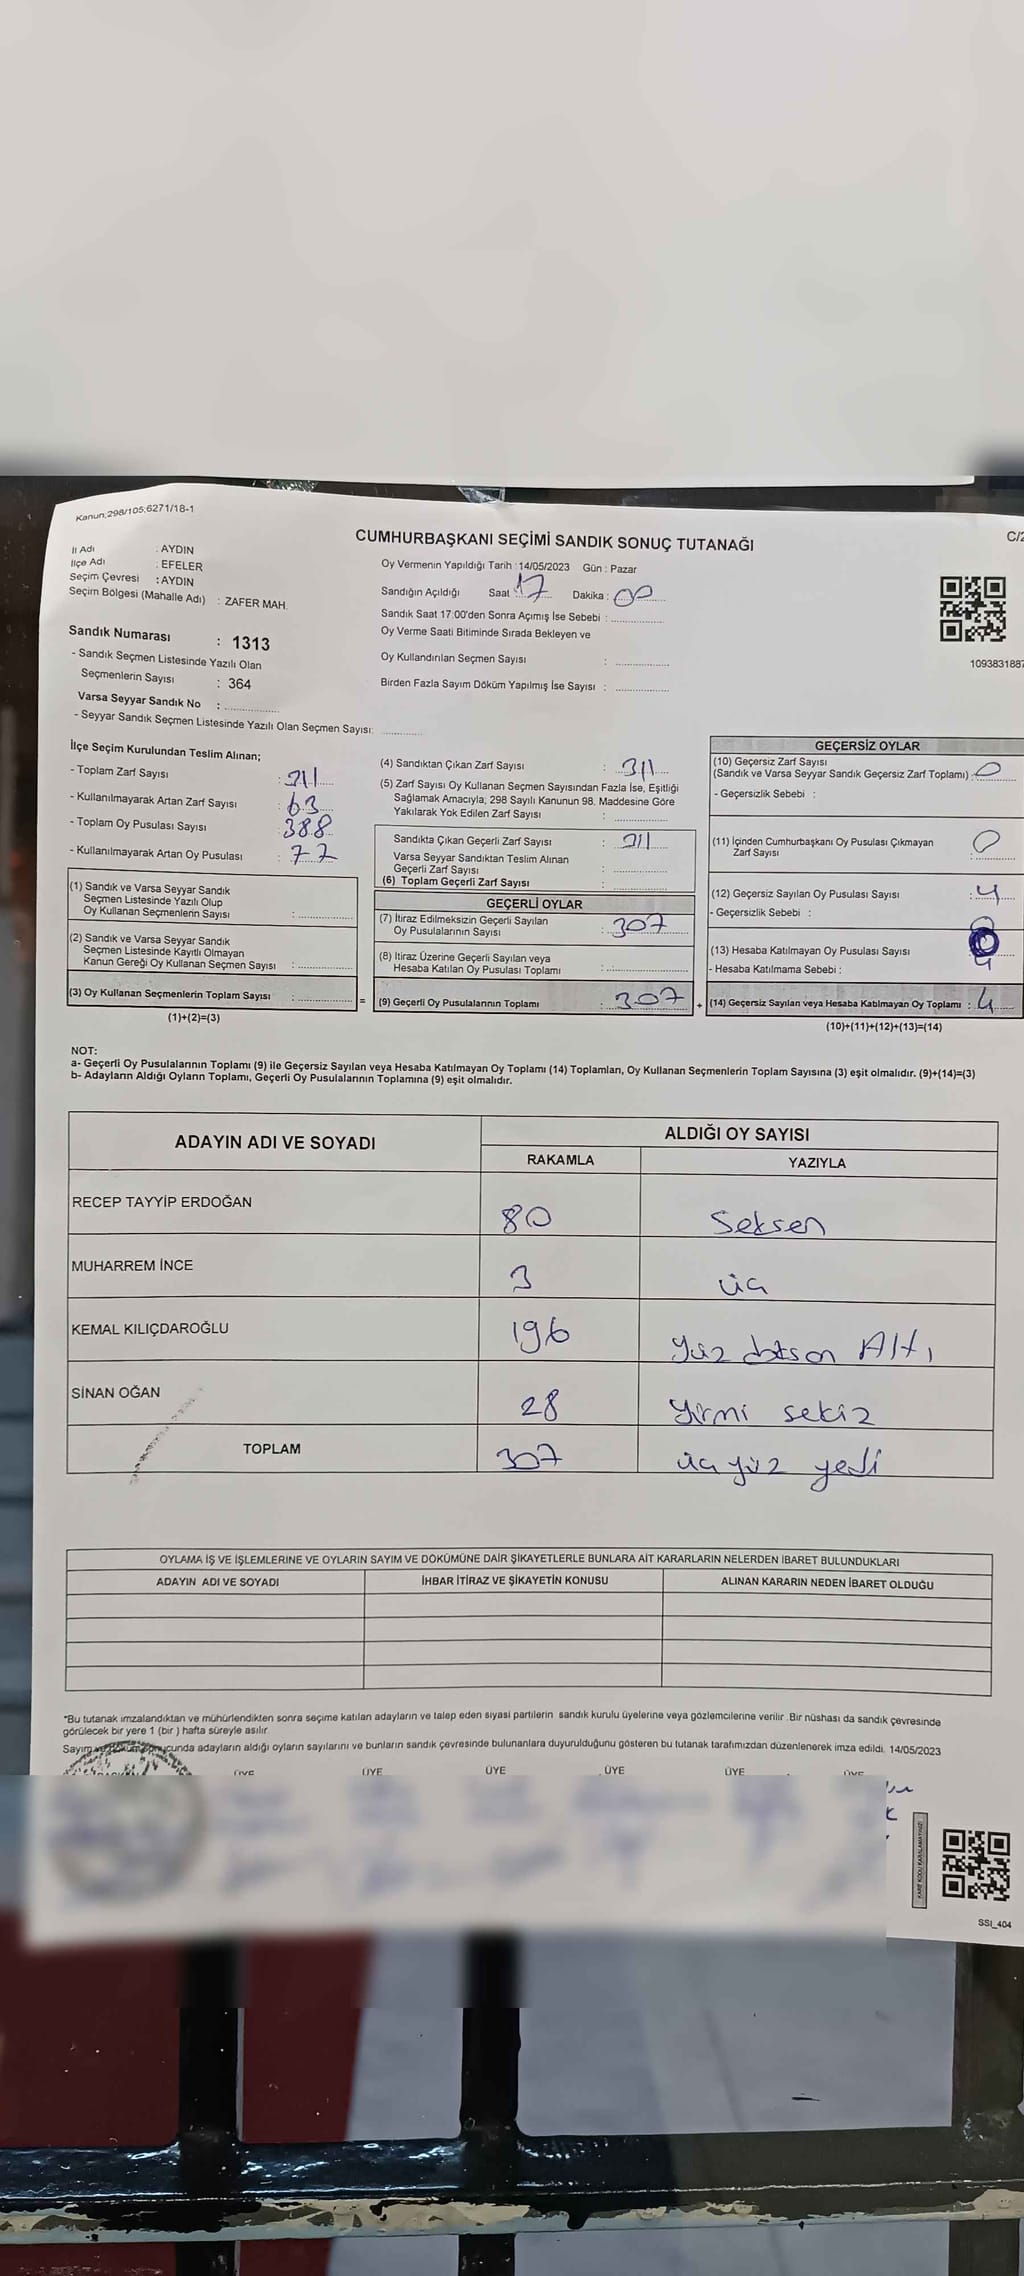 Kanun;298/105;6271/18-1
C/2
CUMHURBAŞKANI SEÇİMİ SANDIK SONUÇ TUTANAĞI
İl Adı : AYDIN
İlçe Adı : EFELER
Seçim Çevresi : AYDIN
Seçim Bölgesi (Mahalle Adı) : ZAFER MAH.
Sandık Numarası : 1313
- Sandık Seçmen Listesinde Yazılı Olan
Seçmenlerin Sayısı : 364
Varsa Seyyar Sandık No :
- Seyyar Sandık Seçmen Listesinde Yazılı Olan Seçmen Sayısı:
Oy Vermenin Yapıldığı Tarih : 14/05/2023 Gün : Pazar
Sandığın Açıldığı Saat 17 Dakika : 00
Sandık Saat 17:00'den Sonra Açımış İse Sebebi :
Oy Verme Saati Bitiminde Sırada Bekleyen ve
Oy Kullandırılan Seçmen Sayısı :
Birden Fazla Sayım Döküm Yapılmış İse Sayısı :
109383188
İlçe Seçim Kurulundan Teslim Alınan;
- Toplam Zarf Sayısı : 311
- Kullanılmayarak Artan Zarf Sayısı : 63
- Toplam Oy Pusulası Sayısı : 388
- Kullanılmayarak Artan Oy Pusulası : 77
(1) Sandık ve Varsa Seyyar Sandık
Seçmen Listesinde Yazılı Olup
Oy Kullanan Seçmenlerin Sayısı :
(2) Sandık ve Varsa Seyyar Sandık
Seçmen Listesinde Kayıtlı Olmayan
Kanun Gereği Oy Kullanan Seçmen Sayısı :
(3) Oy Kullanan Seçmenlerin Toplam Sayısı :
(1)+(2)=(3)
(4) Sandıktan Çıkan Zarf Sayısı : 311
(5) Zarf Sayısı Oy Kullanan Seçmen Sayısından Fazla İse, Eşitliği
Sağlamak Amacıyla; 298 Sayılı Kanunun 98. Maddesine Göre
Yakılarak Yok Edilen Zarf Sayısı :
Sandıkta Çıkan Geçerli Zarf Sayısı : 311
Varsa Seyyar Sandıktan Teslim Alınan
Geçerli Zarf Sayısı :
(6) Toplam Geçerli Zarf Sayısı :
GEÇERLİ OYLAR
(7) İtiraz Edilmeksizin Geçerli Sayılan
Oy Pusulalarının Sayısı : 307
(8) İtiraz Üzerine Geçerli Sayılan veya
Hesaba Katılan Oy Pusulası Toplamı :
= (9) Geçerli Oy Pusulalarının Toplamı : 307
GEÇERSİZ OYLAR
(10) Geçersiz Zarf Sayısı
(Sandık ve Varsa Seyyar Sandık Geçersiz Zarf Toplamı) : 0
- Geçersizlik Sebebi :
(11) İçinden Cumhurbaşkanı Oy Pusulası Çıkmayan
Zarf Sayısı : 0
(12) Geçersiz Sayılan Oy Pusulası Sayısı : 4
- Geçersizlik Sebebi :
(13) Hesaba Katılmayan Oy Pusulası Sayısı 0
- Hesaba Katılmama Sebebi :
+ (14) Geçersiz Sayılan veya Hesaba Katılmayan Oy Toplamı : 4
(10)+(11)+(12)+(13)=(14)
NOT:
a- Geçerli Oy Pusulalarının Toplamı (9) ile Geçersiz Sayılan veya Hesaba Katılmayan Oy Toplamı (14) Toplamları, Oy Kullanan Seçmenlerin Toplam Sayısına (3) eşit olmalıdır. (9)+(14)=(3)
b- Adayların Aldığı Oyların Toplamı, Geçerli Oy Pusulalarının Toplamına (9) eşit olmalıdır.
ADAYIN ADI VE SOYADI ALDIĞI OY SAYISI
RAKAMLA YAZIYLA
RECEP TAYYİP ERDOĞAN 80 Seksen
MUHARREM İNCE 3 üç
KEMAL KILIÇDAROĞLU 196 Yüz doksan Altı
SİNAN OĞAN 28 Yirmi sekiz
TOPLAM 307 üç yüz yedi
OYLAMA İŞ VE İŞLEMLERİNE VE OYLARIN SAYIM VE DÖKÜMÜNE DAİR ŞİKAYETLERLE BUNLARA AİT KARARLARIN NELERDEN İBARET BULUNDUKLARI
ADAYIN ADI VE SOYADI İHBAR İTİRAZ VE ŞİKAYETİN KONUSU ALINAN KARARIN NEDEN İBARET OLDUĞU
*Bu tutanak imzalandıktan ve mühürlendikten sonra seçime katılan adayların ve talep eden siyasi partilerin sandık kurulu üyelerine veya gözlemcilerine verilir. Bir nüshası da sandık çevresinde
görülecek bir yere 1 (bir ) hafta süreyle asılır.
Sayım ve döküm sonucunda adayların aldığı oyların sayılarını ve bunların sandık çevresinde bulunanlara duyurulduğunu gösteren bu tutanak tarafımızdan düzenlenerek imza edildi. 14/05/2023
ÜYE ÜYE ÜYE ÜYE ÜYE ÜYE
KARE KODU KARALAMAYINIZ!
SSI_404